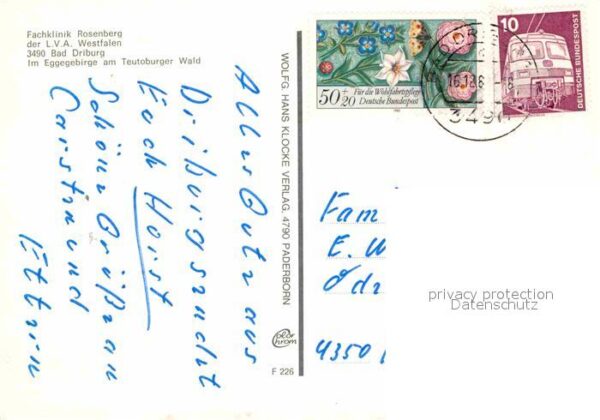 Fachklinik Rosenberg
der L.V.A. Westfalen
3490 Bad Driburg
Im Eggegebirge am Teutoburger Wald
Alles Gute aus
Driburg sendet
Euch Horst
Schöne Grüße an
Carsten und
Eltern
WOLFG. HANS KLOCKE VERLAG, 4790 PADERBORN
Color
chrom
F 226
50+20 Für die Wohlfahrtspflege
Deutsche Bundespost
10
DEUTSCHE BUNDESPOST
349
Fam
E. W
4350
privacy protection
Datenschutz